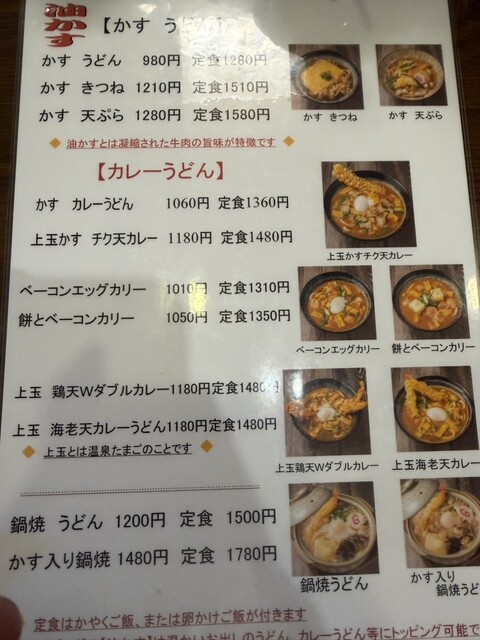 油かす 【かす うどん】
かす うどん 980円 定食1280円
かす きつね 1210円 定食1510円
かす 天ぷら 1280円 定食1580円
かす きつね かす 天ぷら
◆ 油かすとは凝縮された牛肉の旨味が特徴です ◆
【カレーうどん】
かす カレーうどん 1060円 定食1360円
上玉かす チク天カレー 1180円 定食1480円
上玉かすチク天カレー
ベーコンエッグカリー 1010円 定食1310円
餅とベーコンカリー 1050円 定食1350円
ベーコンエッグカリー 餅とベーコンカリー
上玉 鶏天Wダブルカレー1180円定食1480円
上玉 海老天カレーうどん1180円定食1480円
◆ 上玉とは温泉たまごのことです ◆
上玉鶏天Wダブルカレー 上玉海老天カレー
鍋焼 うどん 1200円 定食 1500円
かす入り鍋焼 1480円 定食 1780円
鍋焼うどん かす入り
鍋焼うど
定食はかやくご飯、または卵かけご飯が付きます
は温かいお出しのうどん、カレーうどん等にトッピング可能で